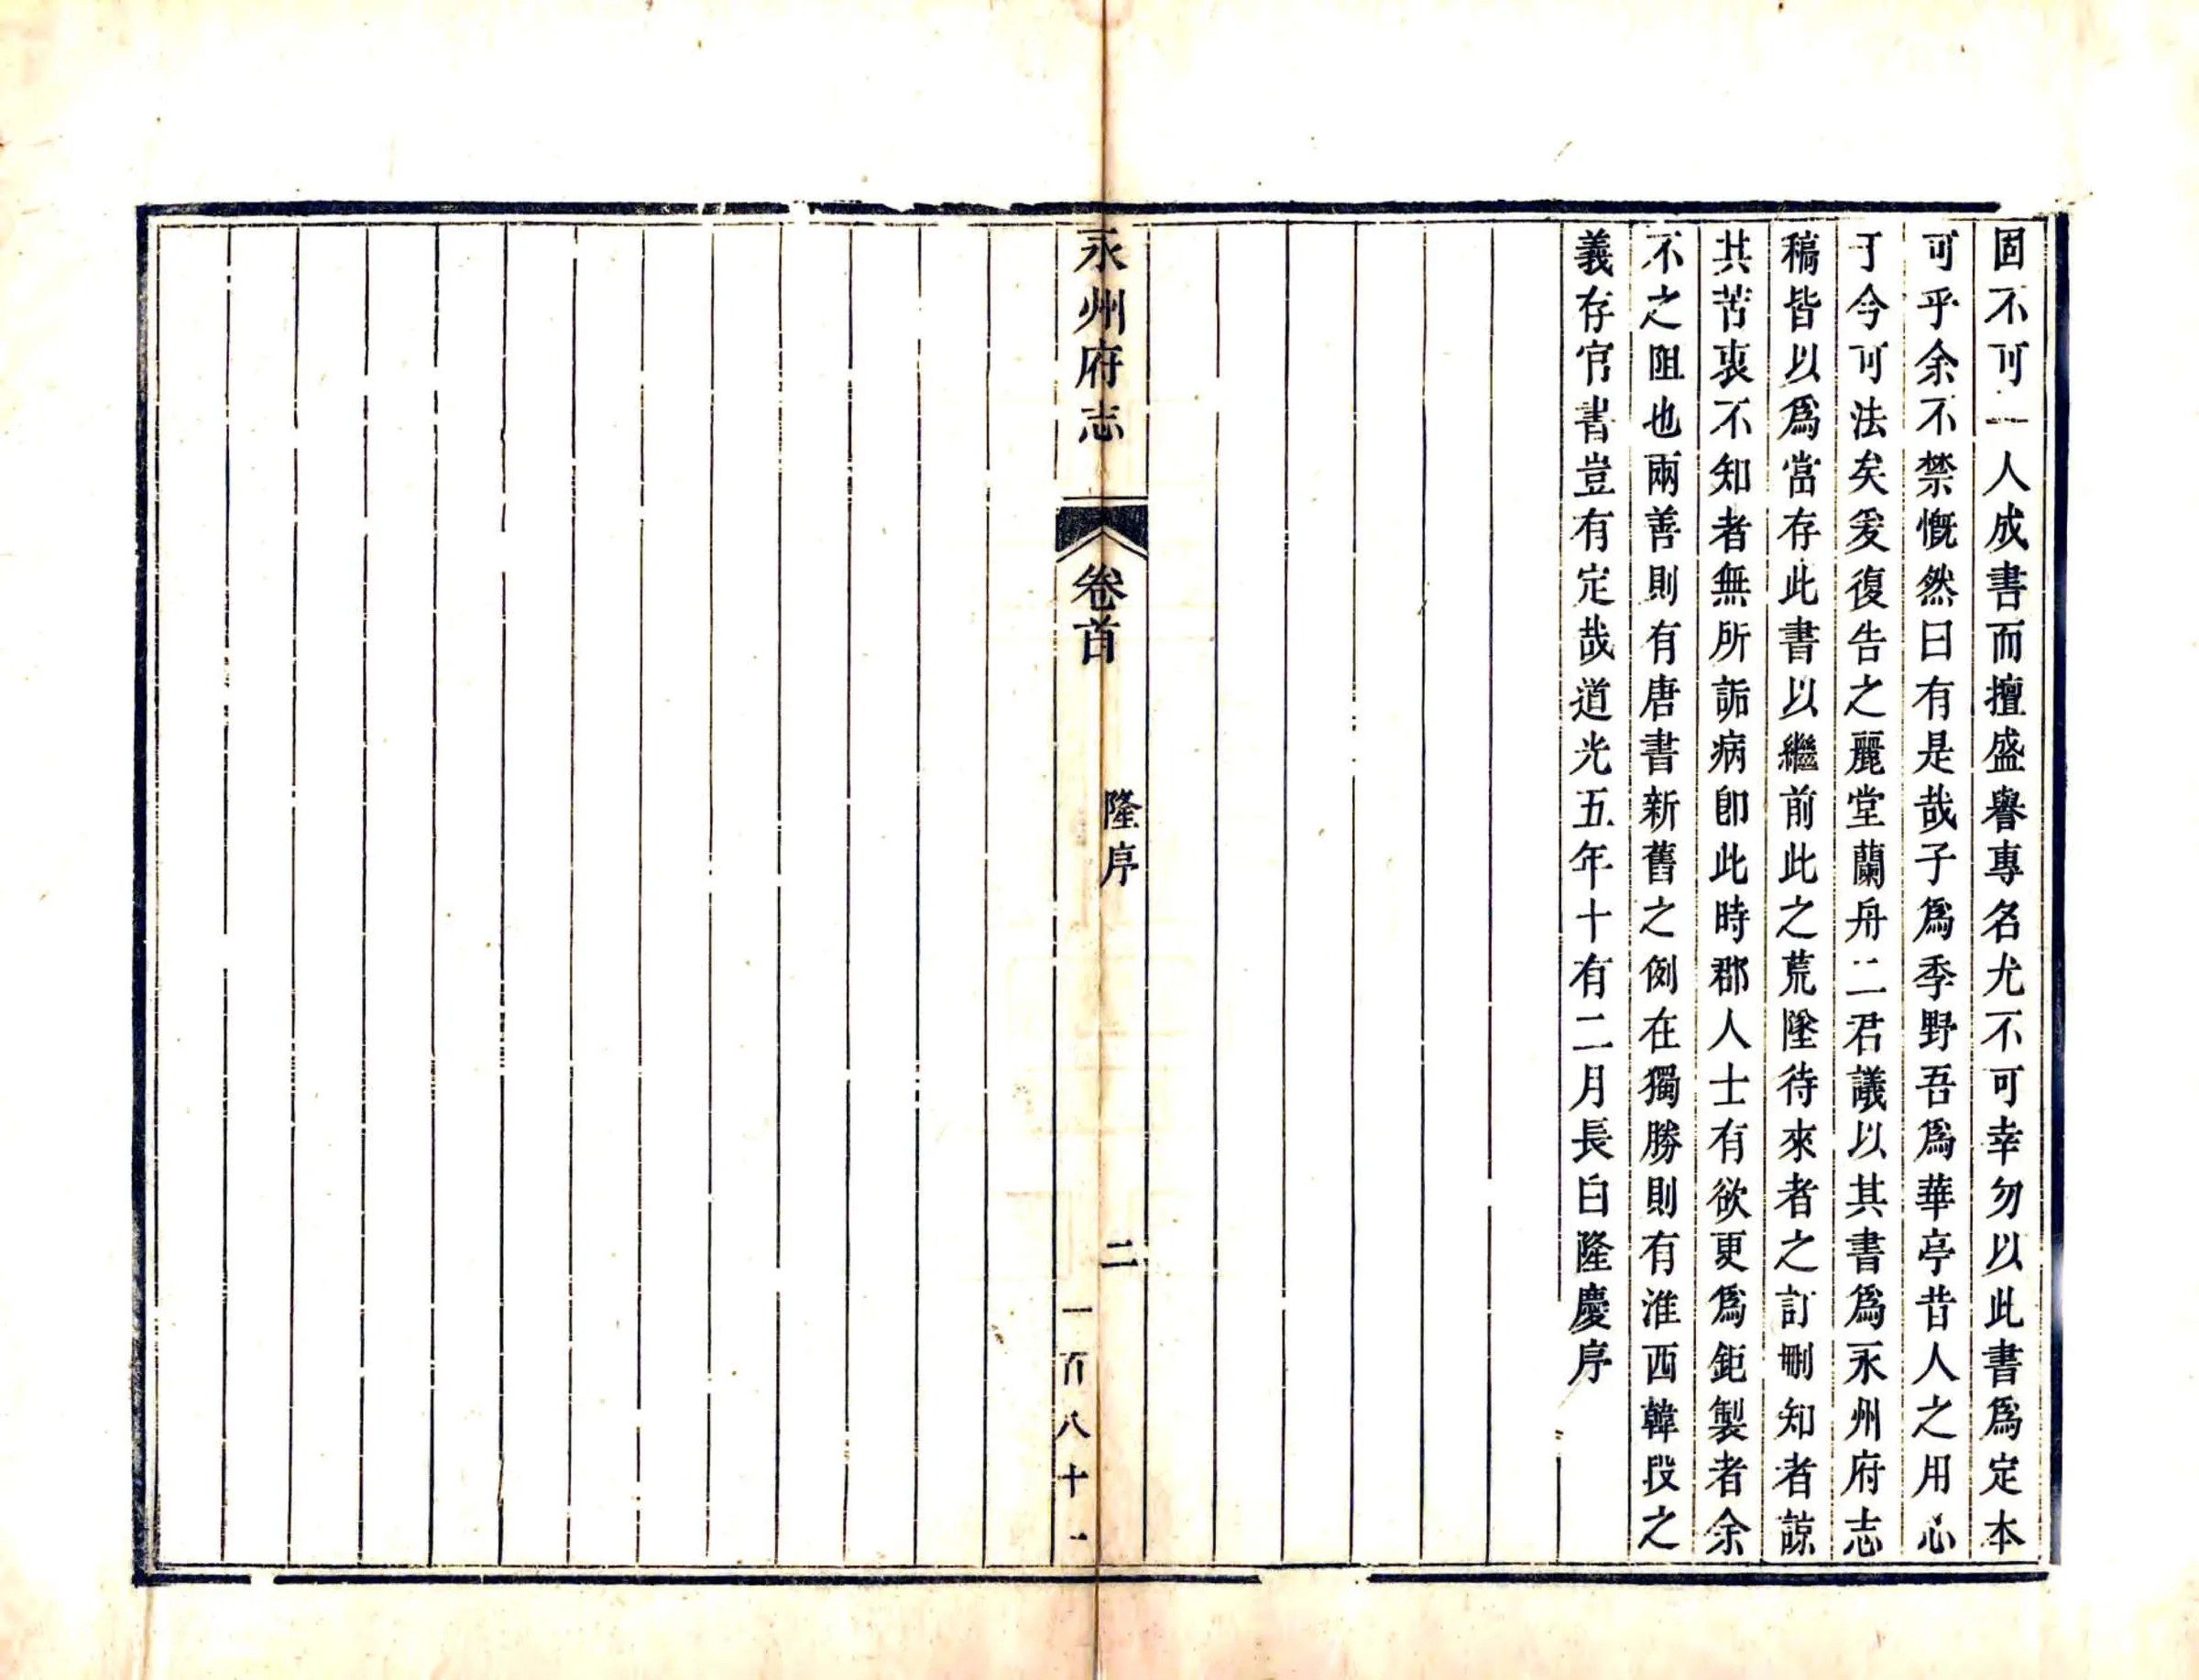 固不可一人成書而擅盛譽專名尤不可幸勿以此書爲定本
可乎余不禁慨然曰有是哉子爲季野吾爲華亭昔人之用心
于今可法矣爰復告之麗堂蘭舟二君議以其書爲永州府志
稿皆以爲當存此書以繼前此之荒墜待來者之訂刪知者諒
其苦衷不知者無所詬病卽此時郡人士有欲更爲鉅製者余
不之阻也兩善則有唐書新舊之例在獨勝則有淮西韓段之
義存官書豈有定哉道光五年十有二月長白隆慶序
永州府志
卷首
隆序
二
一百八十一